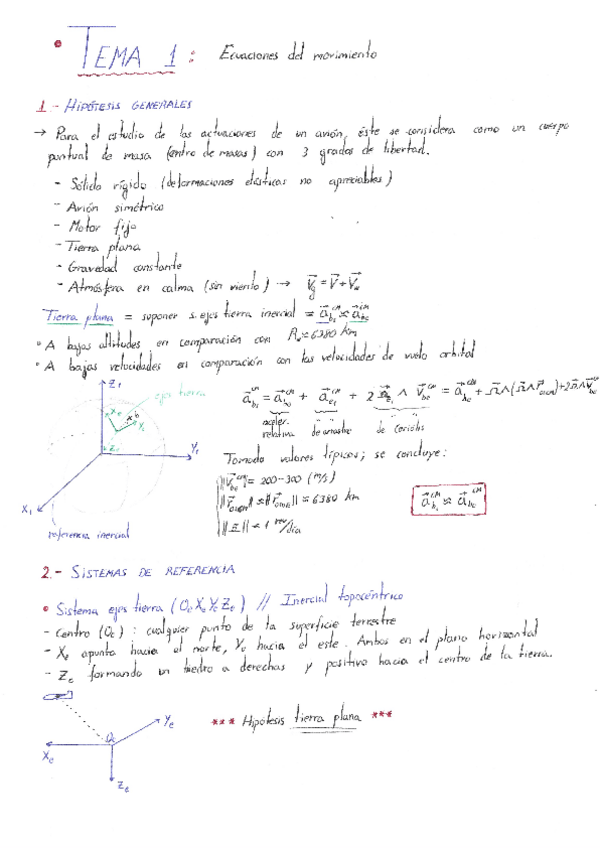 • TEMA 1 : Ecuaciones del movimiento
1.- HIPÓTESIS GENERALES
→ Para el estudio de las actuaciones de un avión, éste se considera como un cuerpo
puntual de masa (centro de masas) con 3 grados de libertad.
- Sólido rígido (deformaciones elásticas no apreciables)
- Avión simétrico
- Motor fijo
- Tierra plana
- Gravedad constante
- Atmósfera en calma (sin viento) → V⃗g = V⃗ + V⃗w
Tierra plana = suponer s. ejes tierra inercial
• A bajas altitudes en comparación con R ≈ 6380 km
• A bajas velocidades en comparación con las velocidades de vuelo orbital
Z₁
ejes tierra
Y₁
X₁
referencia inercial
aceler.
relativa de arrastre de Coriolis
Tomando valores típicos; se concluye:
= 200-300 (m/s)
≈ 6380 km
1 rev/día
2.- SISTEMAS DE REFERENCIA
• Sistema ejes tierra (Oe Xe Ye Ze) // Inercial topocéntrico
- Centro (Oe) : cualquier punto de la superficie terrestre
- Xe apunta hacia el norte, Ye hacia el este. Ambos en el plano horizontal
- Ze formando un triedro a derechas y positivo hacia el centro de la tierra.
Ye
*** Hipótesis tierra plana ***
Oe
Xe
Ze